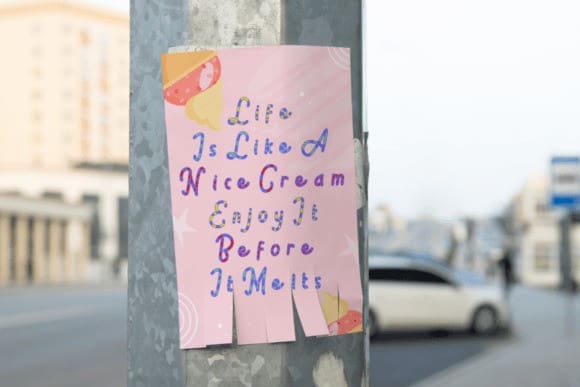 Life
Is Like A
Nice Cream
Enjoy It
Before
It Melts